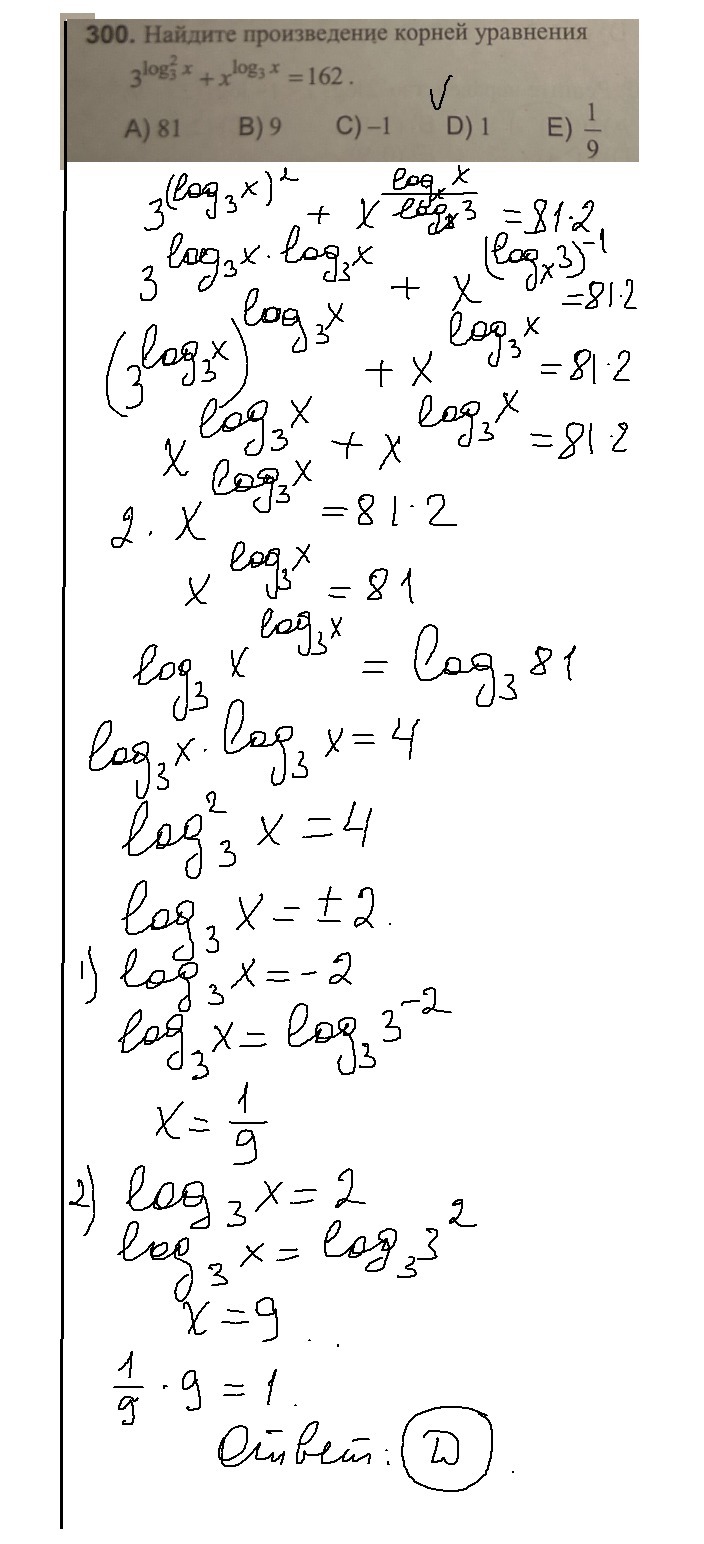 300. Найдите произведение корней уравнения
3^{log_3^2 x} + x^{log_3 x} = 162.
A) 81 B) 9 C) –1 D) 1 E) 1/9
√
3^{(log_3 x)^2} + x^{\frac{log_x x}{log_x 3}} = 81·2
3^{log_3 x · log_3 x} + x^{(log_x 3)^{-1}} = 81·2
(3^{log_3 x})^{log_3 x} + x^{log_3 x} = 81·2
x^{log_3 x} + x^{log_3 x} = 81·2
2 · x^{log_3 x} = 81·2
x^{log_3 x} = 81
log_3 x^{log_3 x} = log_3 81
log_3 x · log_3 x = 4
log_3^2 x = 4
log_3 x = ±2.
1) log_3 x = -2
log_3 x = log_3 3^{-2}
x = 1/9
2) log_3 x = 2
log_3 x = log_3 3^2
x = 9
1/9 · 9 = 1.
Ответ: D.